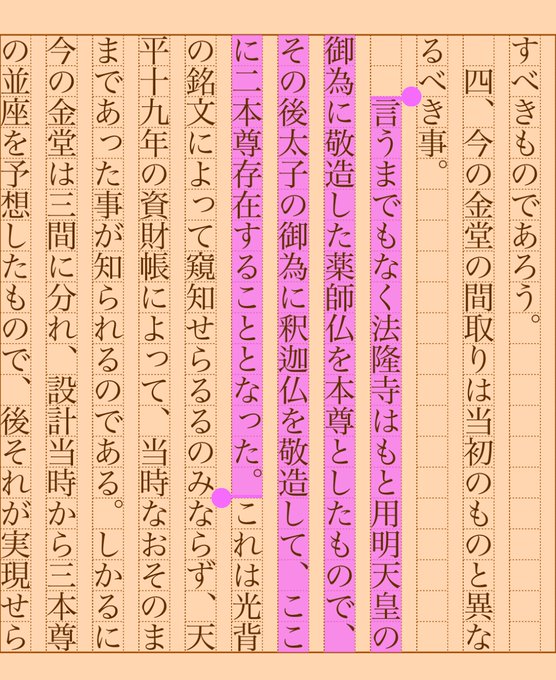 すべきものであろう。
四、今の金堂の間取りは当初のものと異な
るべき事。
言うまでもなく法隆寺はもと用明天皇の
御為に敬造した薬師仏を本尊としたもので、
その後太子の御為に釈迦仏を敬造して、ここ
に二本尊存在することとなった。これは光背
の銘文によって窺知せらるるのみならず、天
平十九年の資財帳によって、当時なおそのま
まであった事が知られるのである。しかるに
今の金堂は三間に分れ、設計当時から三本尊
の並座を予想したもので、後それが実現せら